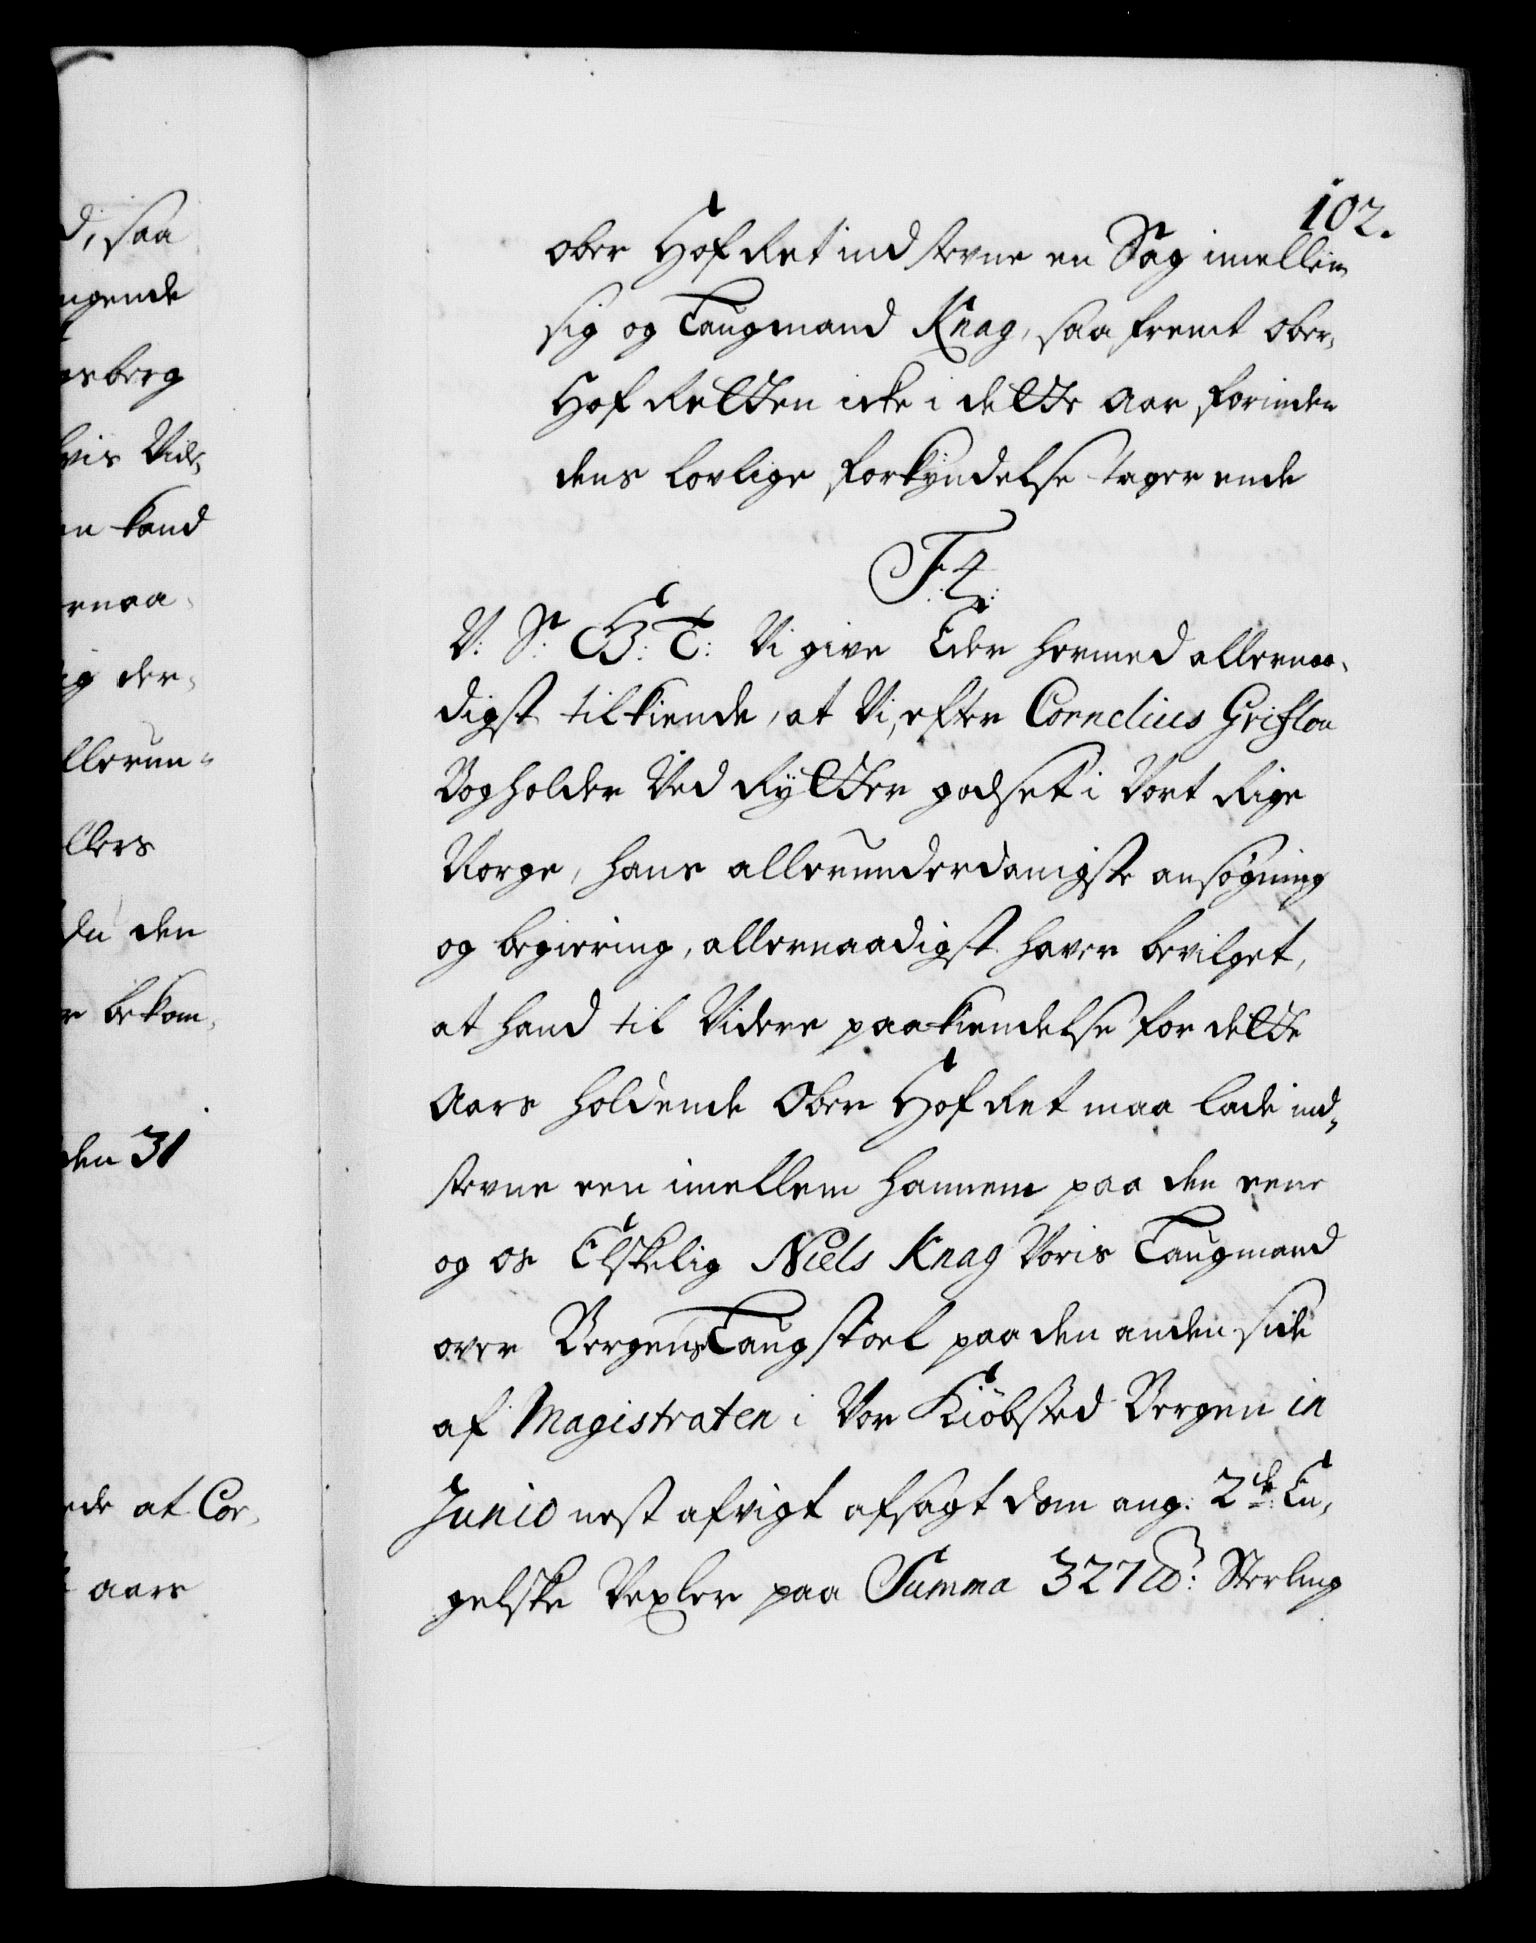 102.
ober Hof Ret ind stevne en Sag imellem
sig og Laugmand Knag, saa fremt Ober,
Hof Retten icke i dette Aar forinden
dens lovlige forkyndelse tager ende
F. 4.
V: S: G: T: Vi give Eder hermed allernaa,
digst tilkiende, at Vi, efter Cornelius Griflou
Bogholder Ved Rytter godset i Vort Rige
Norge, hans allerunderdanigste ansøgning
og begiering, allernaadigst haver bevilget,
at hand til Videre paakiendelse for dette
Aars holdende Ober Hof Ret maa lade ind,
stevne een imellem hannem paa den eene
og os Elskelig Niels Knag Voris Laugmand
over Bergens Laugstoel paa den anden side
af Magistraten i Vor Kiöbsted Bergen in
Junio nest afvigt afsagt dom ang: 2de En,
gelske Vexler paa Summa 327 ℔: Sterling
d, saa
ngende
gsberg
vis Vide,
en kand
ernaa,
ig der,
llerun,
llers
du den
r bekom,
den 31
ede at Cor,
aars